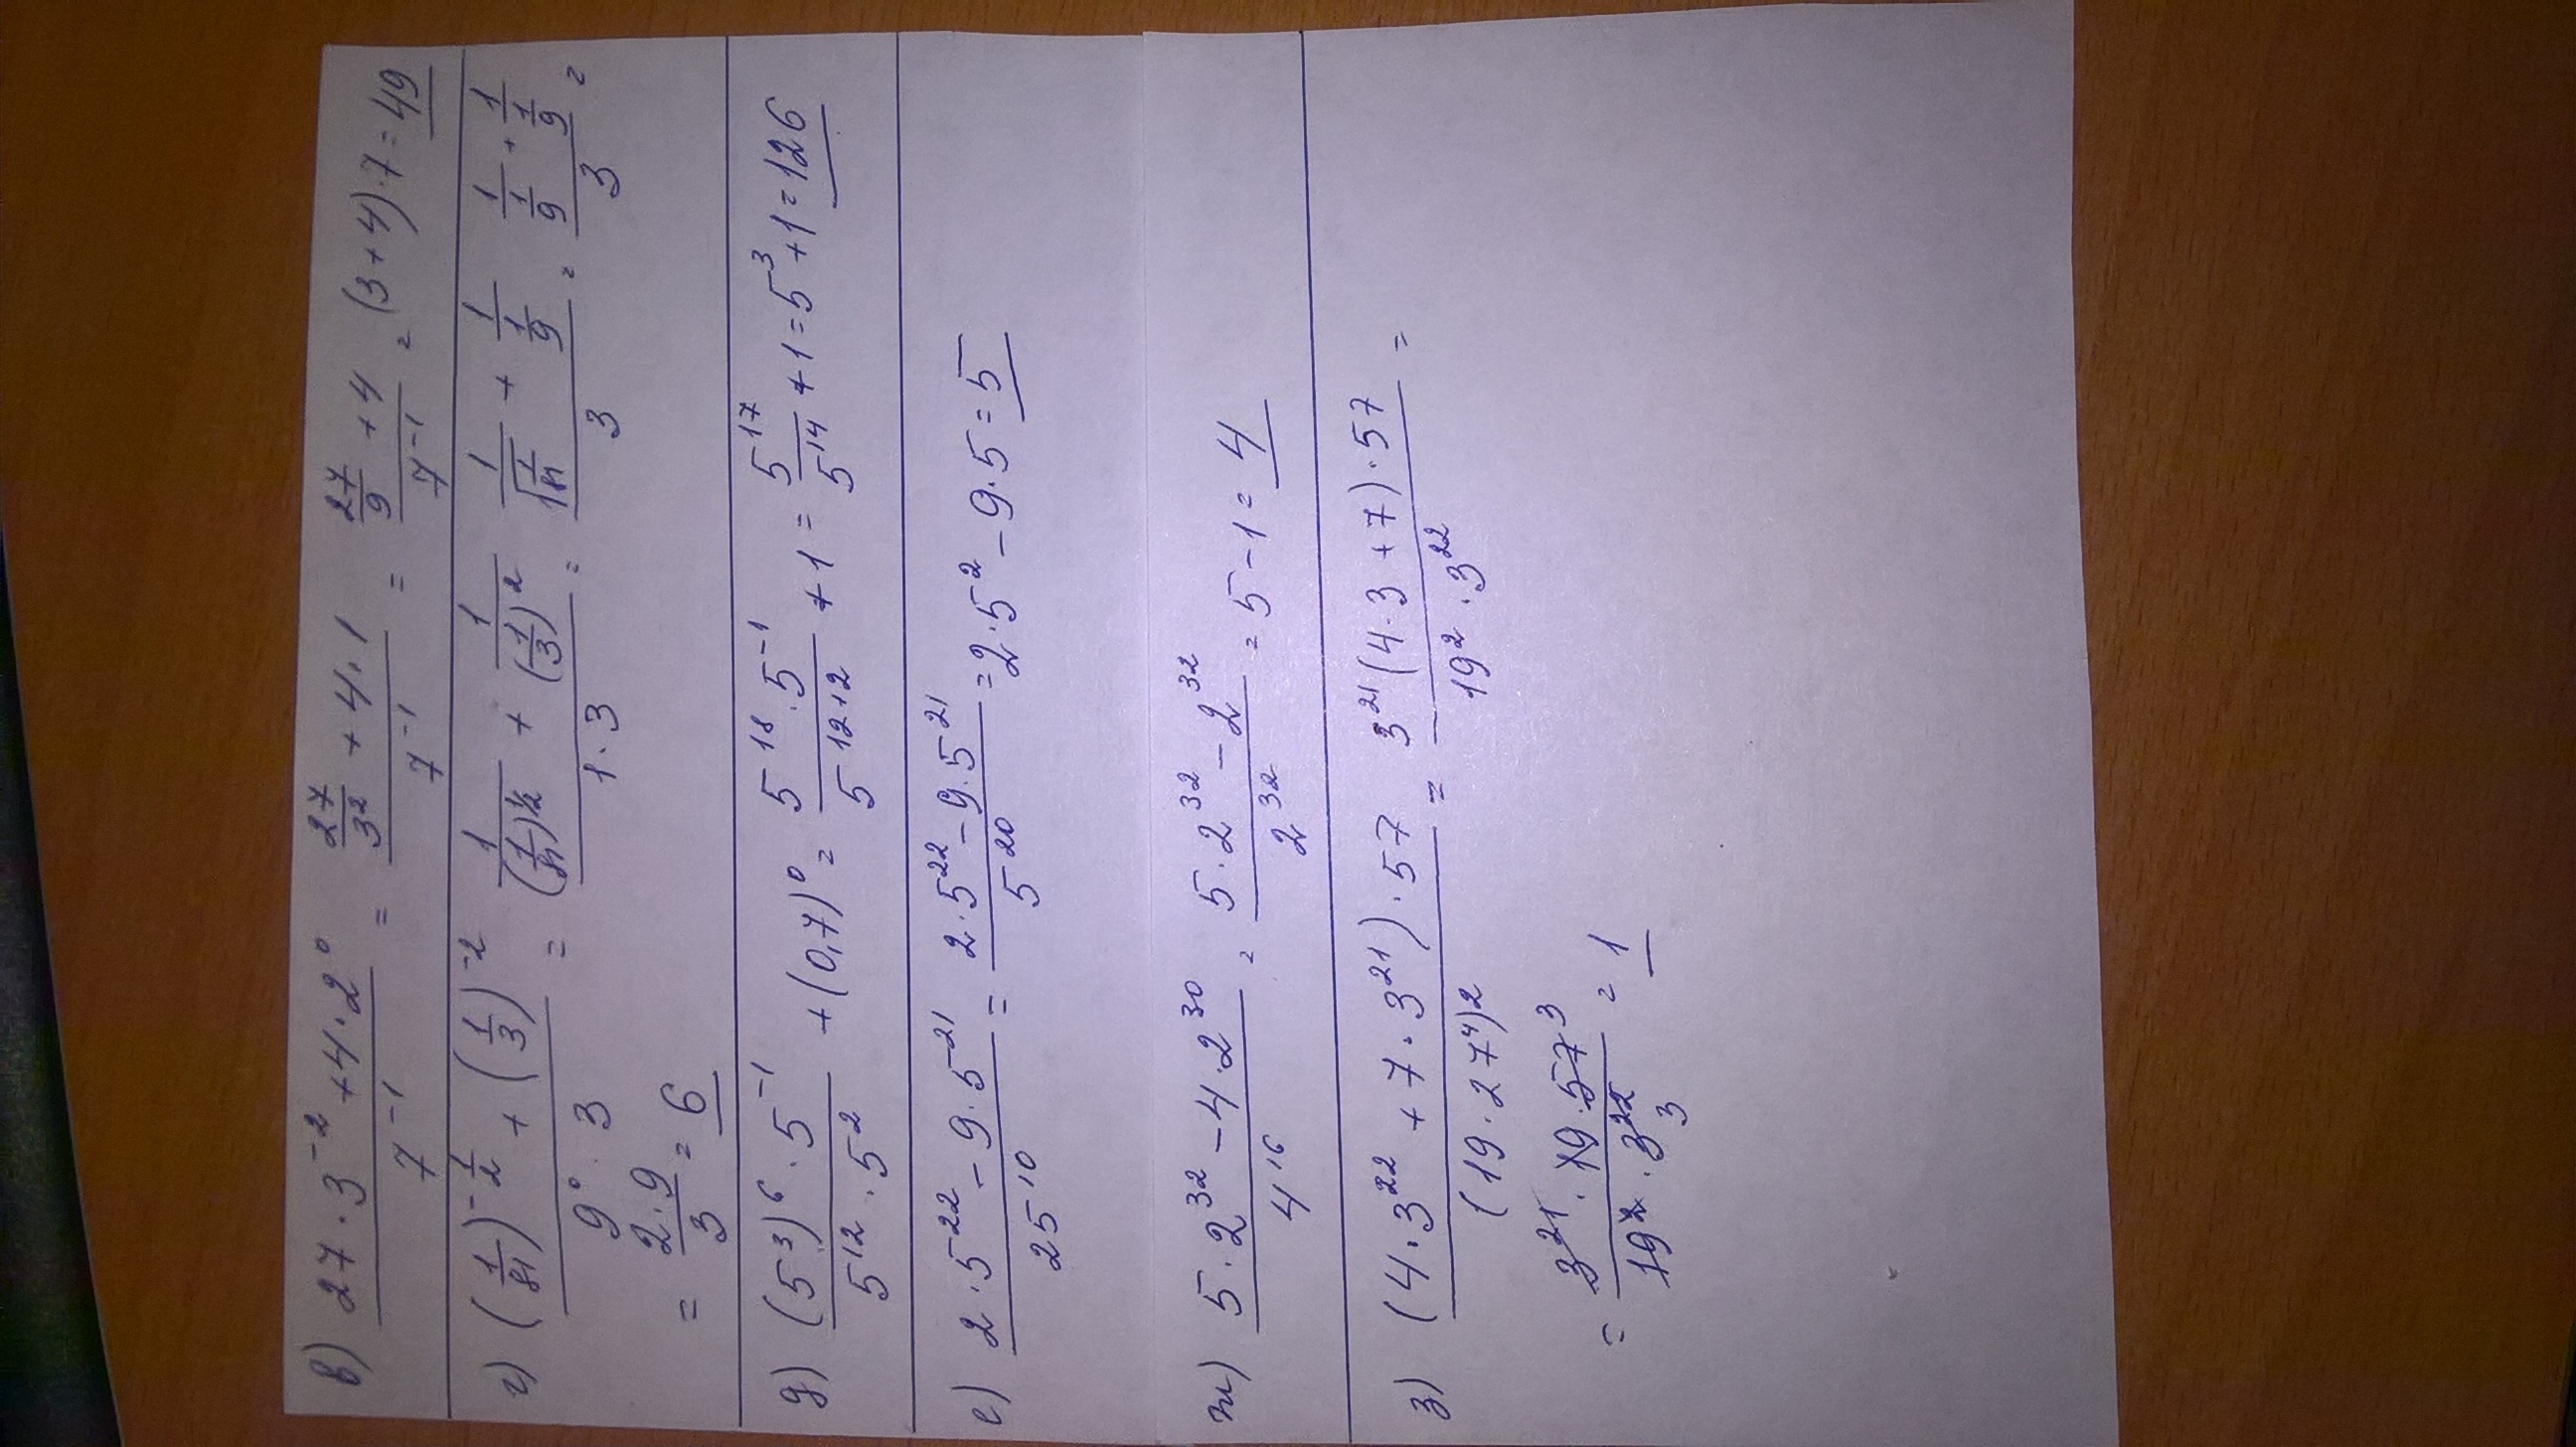 в) (27 · 3^-2 + 4 · 2^0) / 7^-1 = (27/3^2 + 4 · 1) / 7^-1 = (27/9 + 4) / 7^-1 = (3 + 4) · 7 = 49
г) ((1/81)^-1/2 + (1/3)^-2) / (9^0 · 3) = (1/(1/81)^1/2 + 1/(1/3)^2) / (1 · 3) = (1/√(1/81) + 1/(1/9)) / 3 = (1/(1/9) + 1/(1/9)) / 3 =
= (2 · 9)/3 = 6
д) ((5^3)^6 · 5^-1) / (5^12 · 5^2) + (0,7)^0 = (5^18 · 5^-1) / 5^12+2 + 1 = 5^17/5^14 + 1 = 5^3 + 1 = 126
е) (2 · 5^22 - 9 · 5^21) / 25^10 = (2 · 5^22 - 9 · 5^21) / 5^20 = 2 · 5^2 - 9 · 5 = 5
ж) (5 · 2^32 - 4 · 2^30) / 4^16 = (5 · 2^32 - 2^32) / 2^32 = 5 - 1 = 4
з) ((4 · 3^22 + 7 · 3^21) · 57) / (19 · 27^4)^2 = (3^21 (4 · 3 + 7) · 57) / (19^2 · 3^22) =
= (3^21 · 19 · 57 3) / (19^2 · 3^22 3) = 1